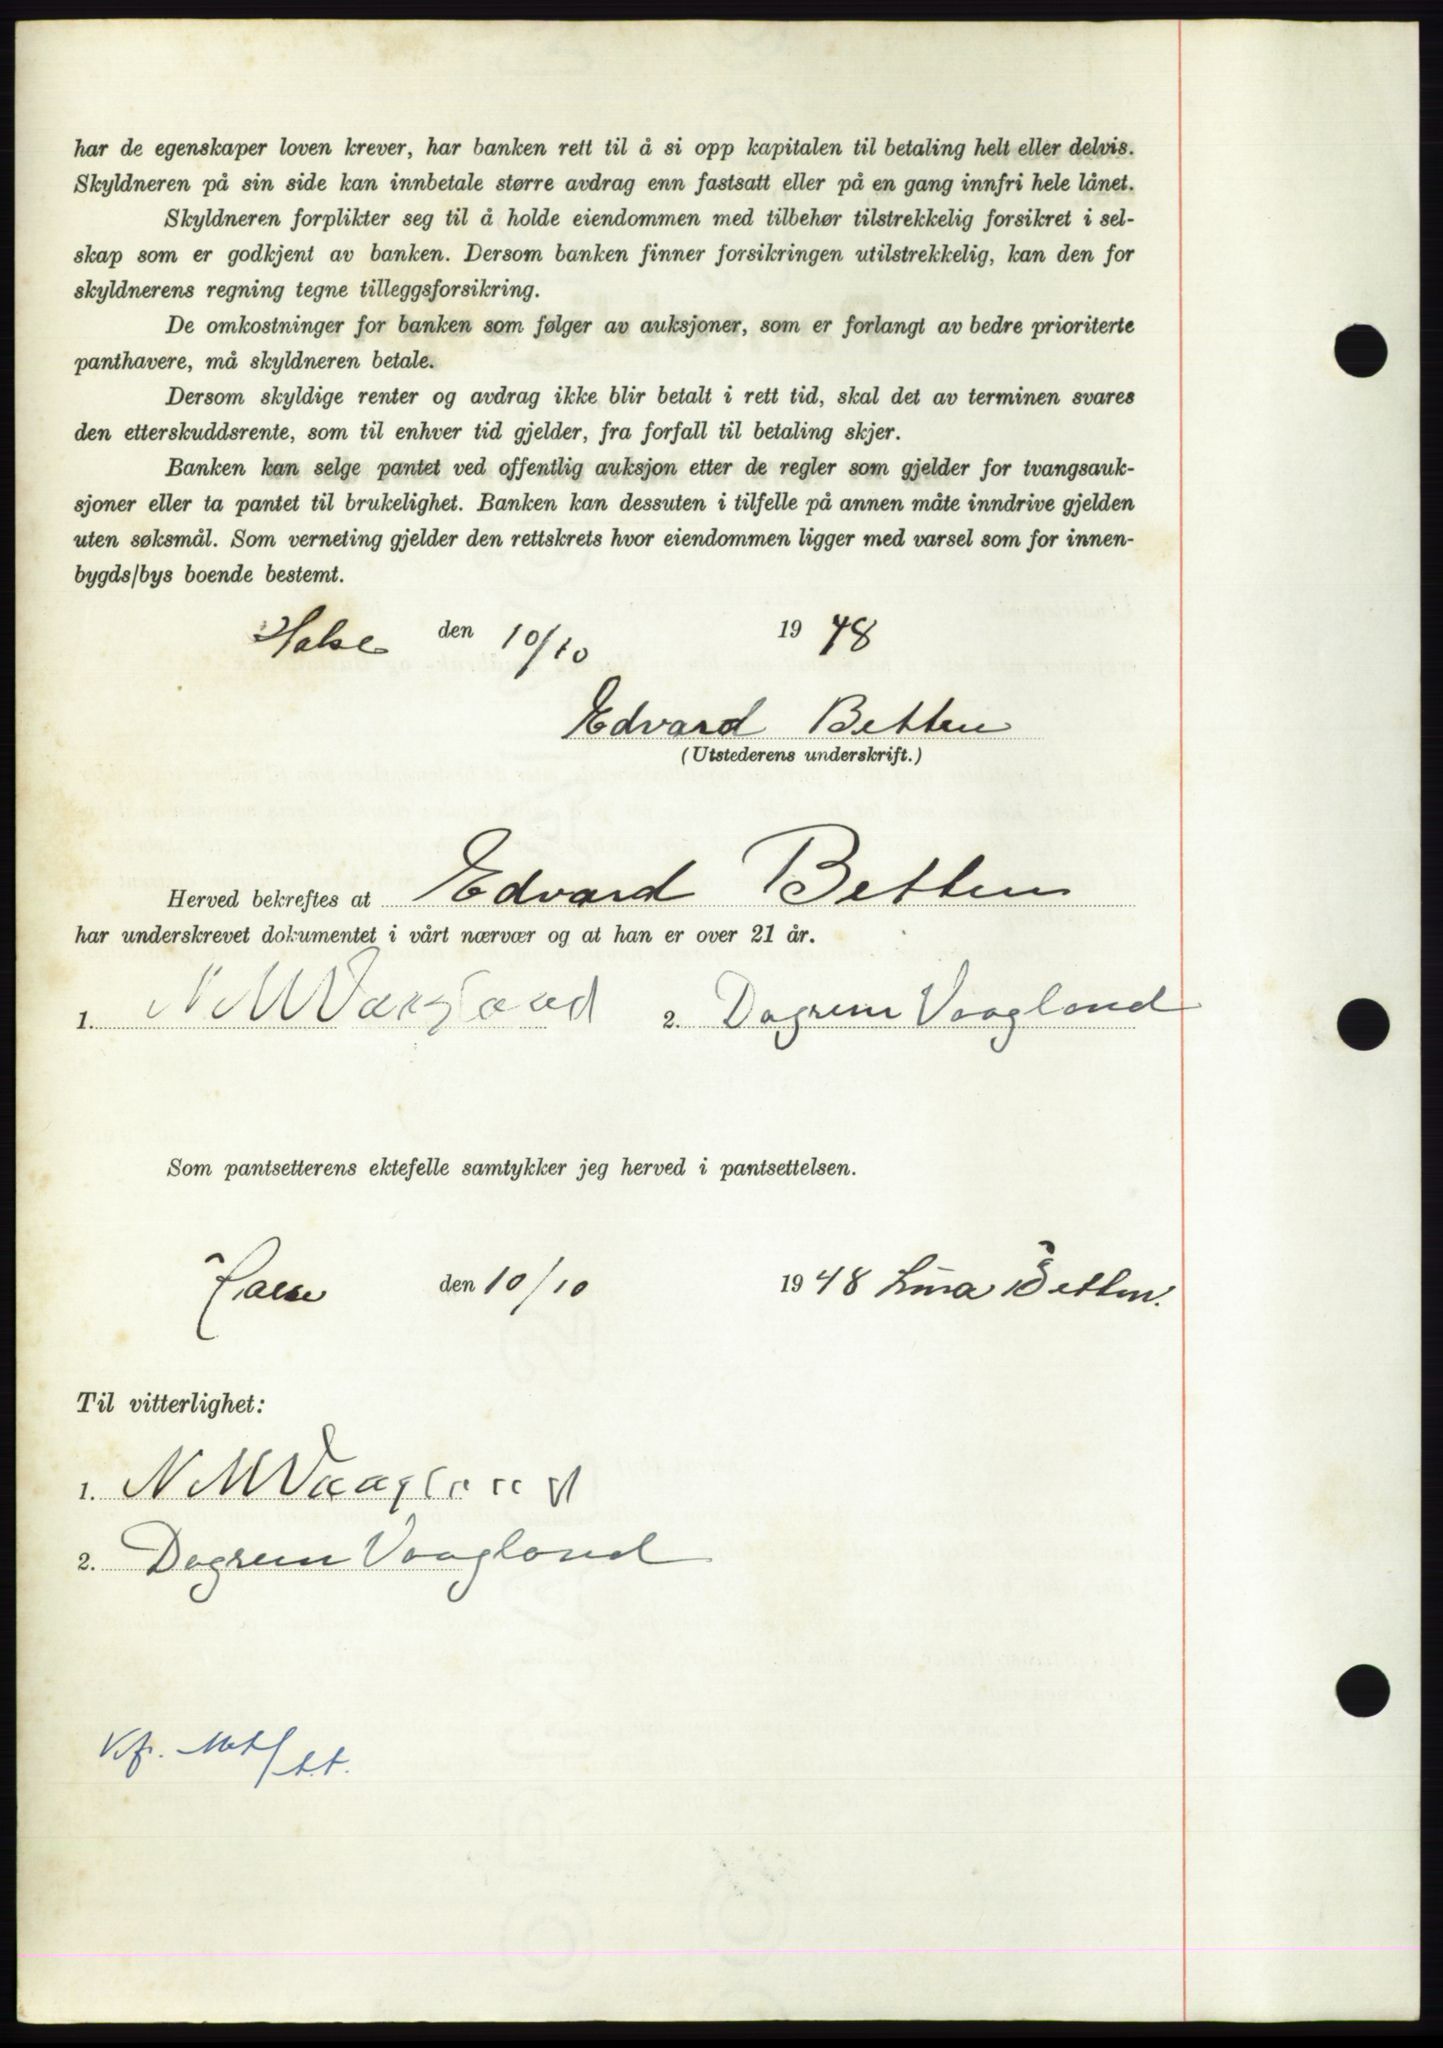 har de egenskaper loven krever, har banken rett til å si opp kapitalen til betaling helt eller delvis.
Skyldneren på sin side kan innbetale større avdrag enn fastsatt eller på en gang innfri hele lånet.
Skyldneren forplikter seg til å holde eiendommen med tilbehør tilstrekkelig forsikret i sel-
skap som er godkjent av banken. Dersom banken finner forsikringen utilstrekkelig, kan den for
skyldnerens regning tegne tilleggsforsikring.
De omkostninger for banken som følger av auksjoner, som er forlangt av bedre prioriterte
panthavere, må skyldneren betale.
Dersom skyldige renter og avdrag ikke blir betalt i rett tid, skal det av terminen svares
den etterskuddsrente, som til enhver tid gjelder, fra forfall til betaling skjer.
Banken kan selge pantet ved offentlig auksjon etter de regler som gjelder for tvangsauk-
sjoner eller ta pantet til brukelighet. Banken kan dessuten i tilfelle på annen måte inndrive gjelden
uten søksmål. Som verneting gjelder den rettskrets hvor eiendommen ligger med varsel som for innen-
bygds/bys boende bestemt.
Halse den 10/10 1948
Edvard Betten
(Utstederens underskrift.)
Herved bekreftes at Edvard Betten
har underskrevet dokumentet i vårt nærvær og at han er over 21 år.
1. N M Vaagland 2. Dagrun Vaagland
Som pantsetterens ektefelle samtykker jeg herved i pantsettelsen.
Halse den 10/10 1948 Lina Betten.
Til vitterlighet:
1. N M Vaagland
2. Dagrun Vaagland